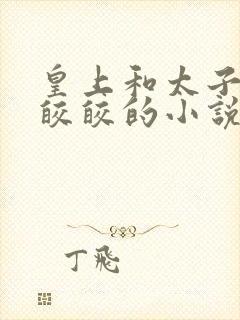 皇上和太子
皎皎的小說
丁飛